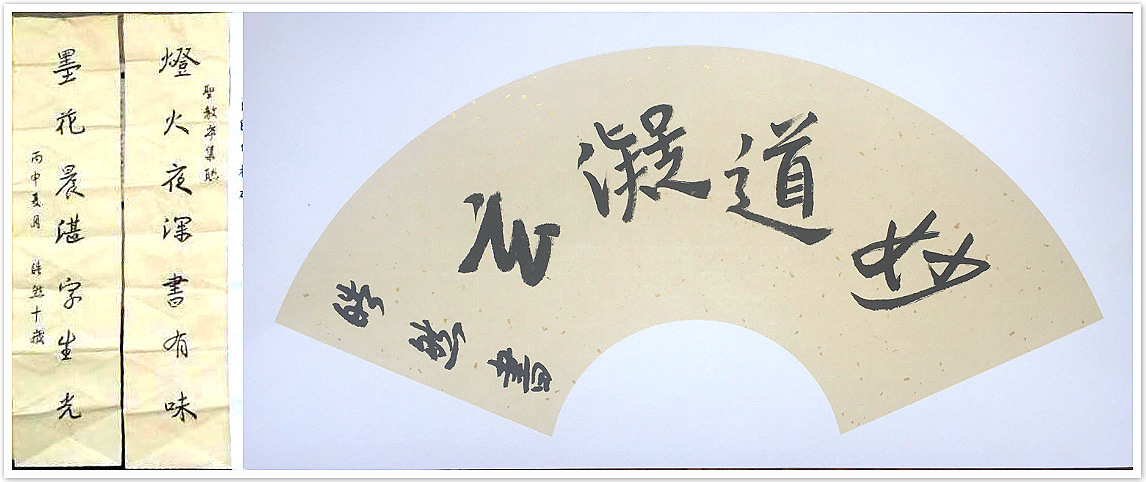 燈火夜深書有味
聖教序集聯
墨花晨湛字生光
丙申夏月 然十歲
道凝
書